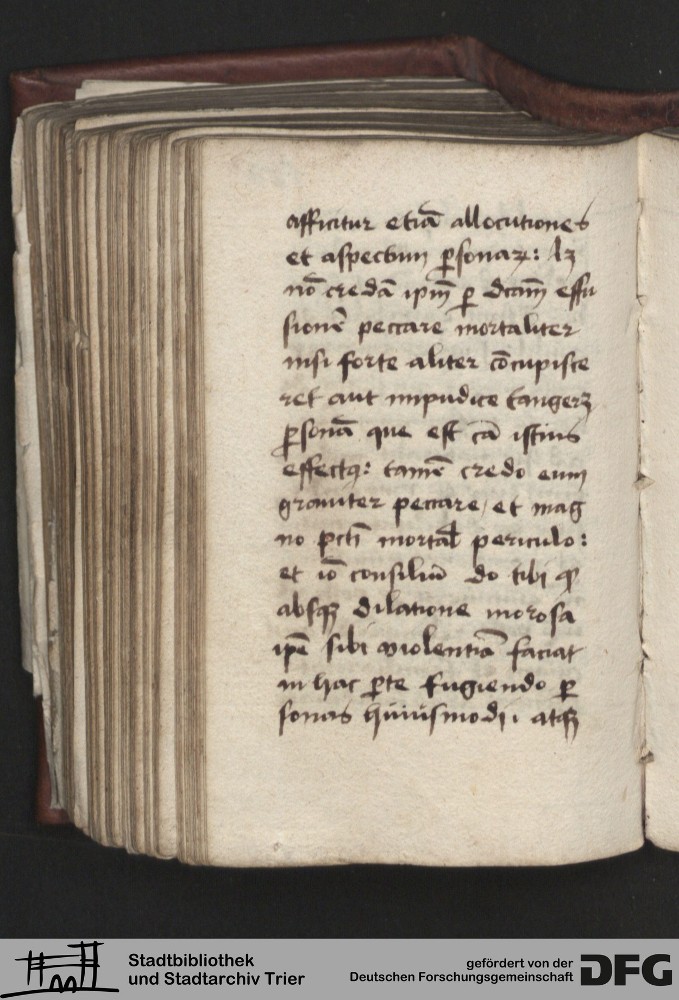 afficitur etiā allocutiones
et aspectum ꝑsonaꝝ: lꝫ
nō credā ipm̄ ꝑ dcām effu
sionē peccare mortaliter
nisi forte aliter cōcupisce
ret aut impudice tangerꝫ
ꝑsonā que est cā istius
effectꝰ: tamē credo eum
grauiter peccare, et mag
no pctī mortal periculo:
et iō consiliū do tibi ꝙ
absqꝫ dilatione morosa
ipē sibi violentiā faciat
in hac ꝑte fugiendo ꝑ
sonas huiusmodi, atqꝫ
Stadtbibliothek
und Stadtarchiv Trier
gefördert von der
Deutschen Forschungsgemeinschaft
DFG